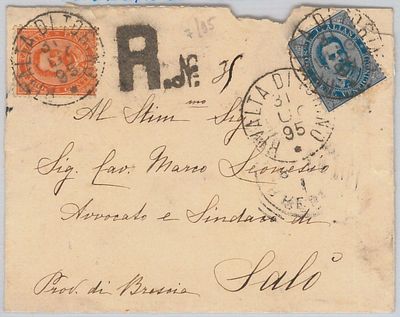 7/95
R. No. 35
RIVALTA DI TORINO
31
95
Al Stim.mo Sig.
Sig. Cav. Marco Leonesio
Avvocato e Sindaco di
Salò
Prov. di Brescia